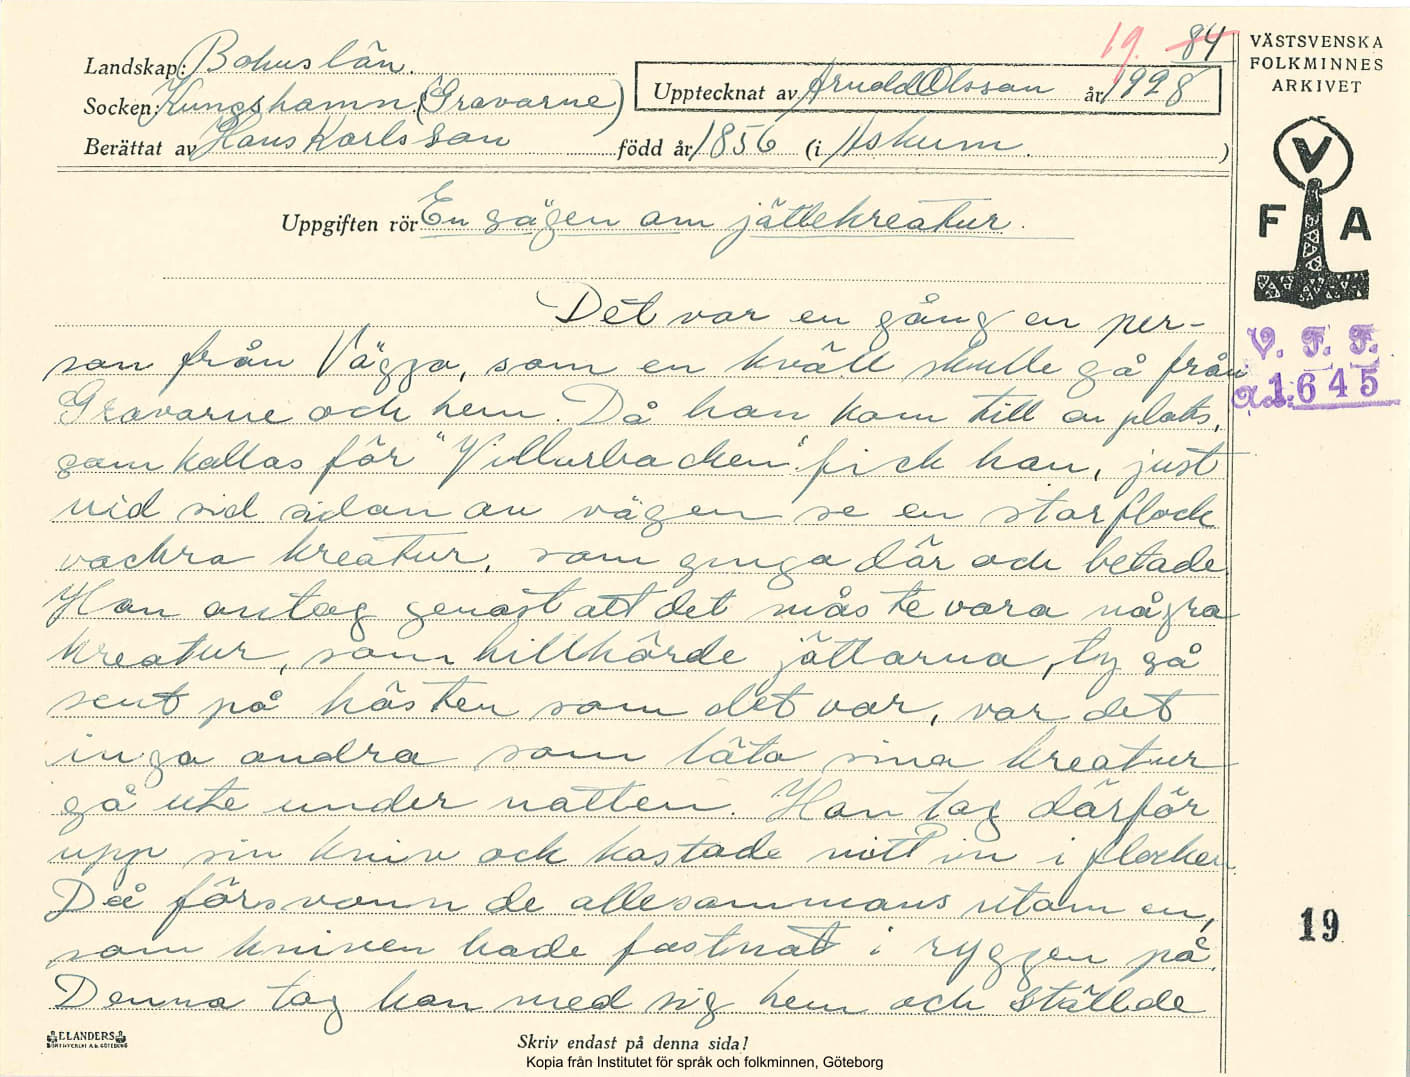 19. 84
Landskap: Bohuslän.
Socken: Kungshamn (Gravarne)
Upptecknat av Arnold Olsson år 1928
Berättat av Hans Karlsson född år 1856 (i Askum.)
VÄSTSVENSKA
FOLKMINNES
ARKIVET
V
F A
Uppgiften rör En sägen om jättekreatur.
V. F. F.
1645
Det var en gång en per-
son från Vägga, som en kväll skulle gå från
Gravarne och hem. Då han kom till en plats,
som kallas för "Villurbacken" fick han, just
vid sid sidan av vägen se en stor flock
vackra kreatur, som gingo där och betade.
Han antog genast att det måste vara några
kreatur, som tillhörde jättarna, ty så
sent på hösten som det var, var det
inga andra som läto sina kreatur
gå ute under natten. Han tog därför
upp sin kniv och kastade mitt in i flocken.
Då försvann de allesammans utom en,
som kniven hade fastnat i ryggen på.
Denna tog han med sig hem och ställde
19
ELANDERS
BOKTRYCKERI A.B. GÖTEBORG
Skriv endast på denna sida!
Kopia från Institutet för språk och folkminnen, Göteborg